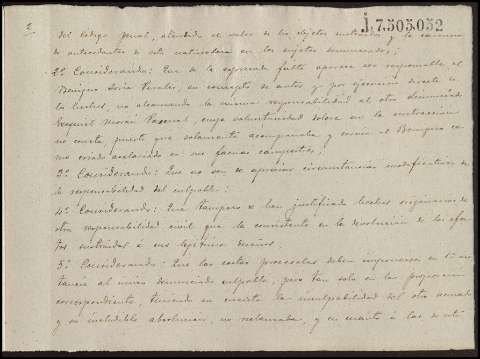 2
J. 7.505.052
del Código penal, atendido el valor de los objetos y la carencia
de antecedentes de esta naturaleza en los sujetos denunciados;
2º Considerando: Que de la expresada falta aparece ser responsable el
Benigno Soria Perales, en concepto de autor y por ejecución directa de
los hechos, no alcanzando la misma responsabilidad al otro denunciado
Morán Pascual, cuya voluntariedad dolosa en la sustracción
no consta, puesto que solamente acompañaba y servía al Benigno co-
mo criado asalariado en sus faenas campestres;
3º Considerando: Que no son de apreciar circunstancias modificativas de
la responsabilidad del culpable;
4º Considerando: Que tampoco se han justificado hechos originarios de
otra responsabilidad civil que la consistente en la devolución de los efec-
tos sustraídos á sus legítimos dueños.
5º Considerando: Que las costas procesales deben imponerse en 1ª ins-
tancia al único denunciado culpable, pero tan solo en la proporción
correspondiente, teniendo en cuenta la inculpabilidad del otro acusado
y su ineludible absolución, no reclamada, y en cuanto á las de esta